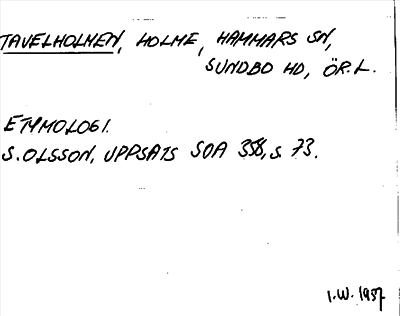 TAVELHOLMEN, HOLME, HAMMARS SN,
SUNDBO HD, ÖR.L.
ETYMOLOGI.
S. OLSSON, UPPSATS SOA 358, S. 73.
I.W. 1937